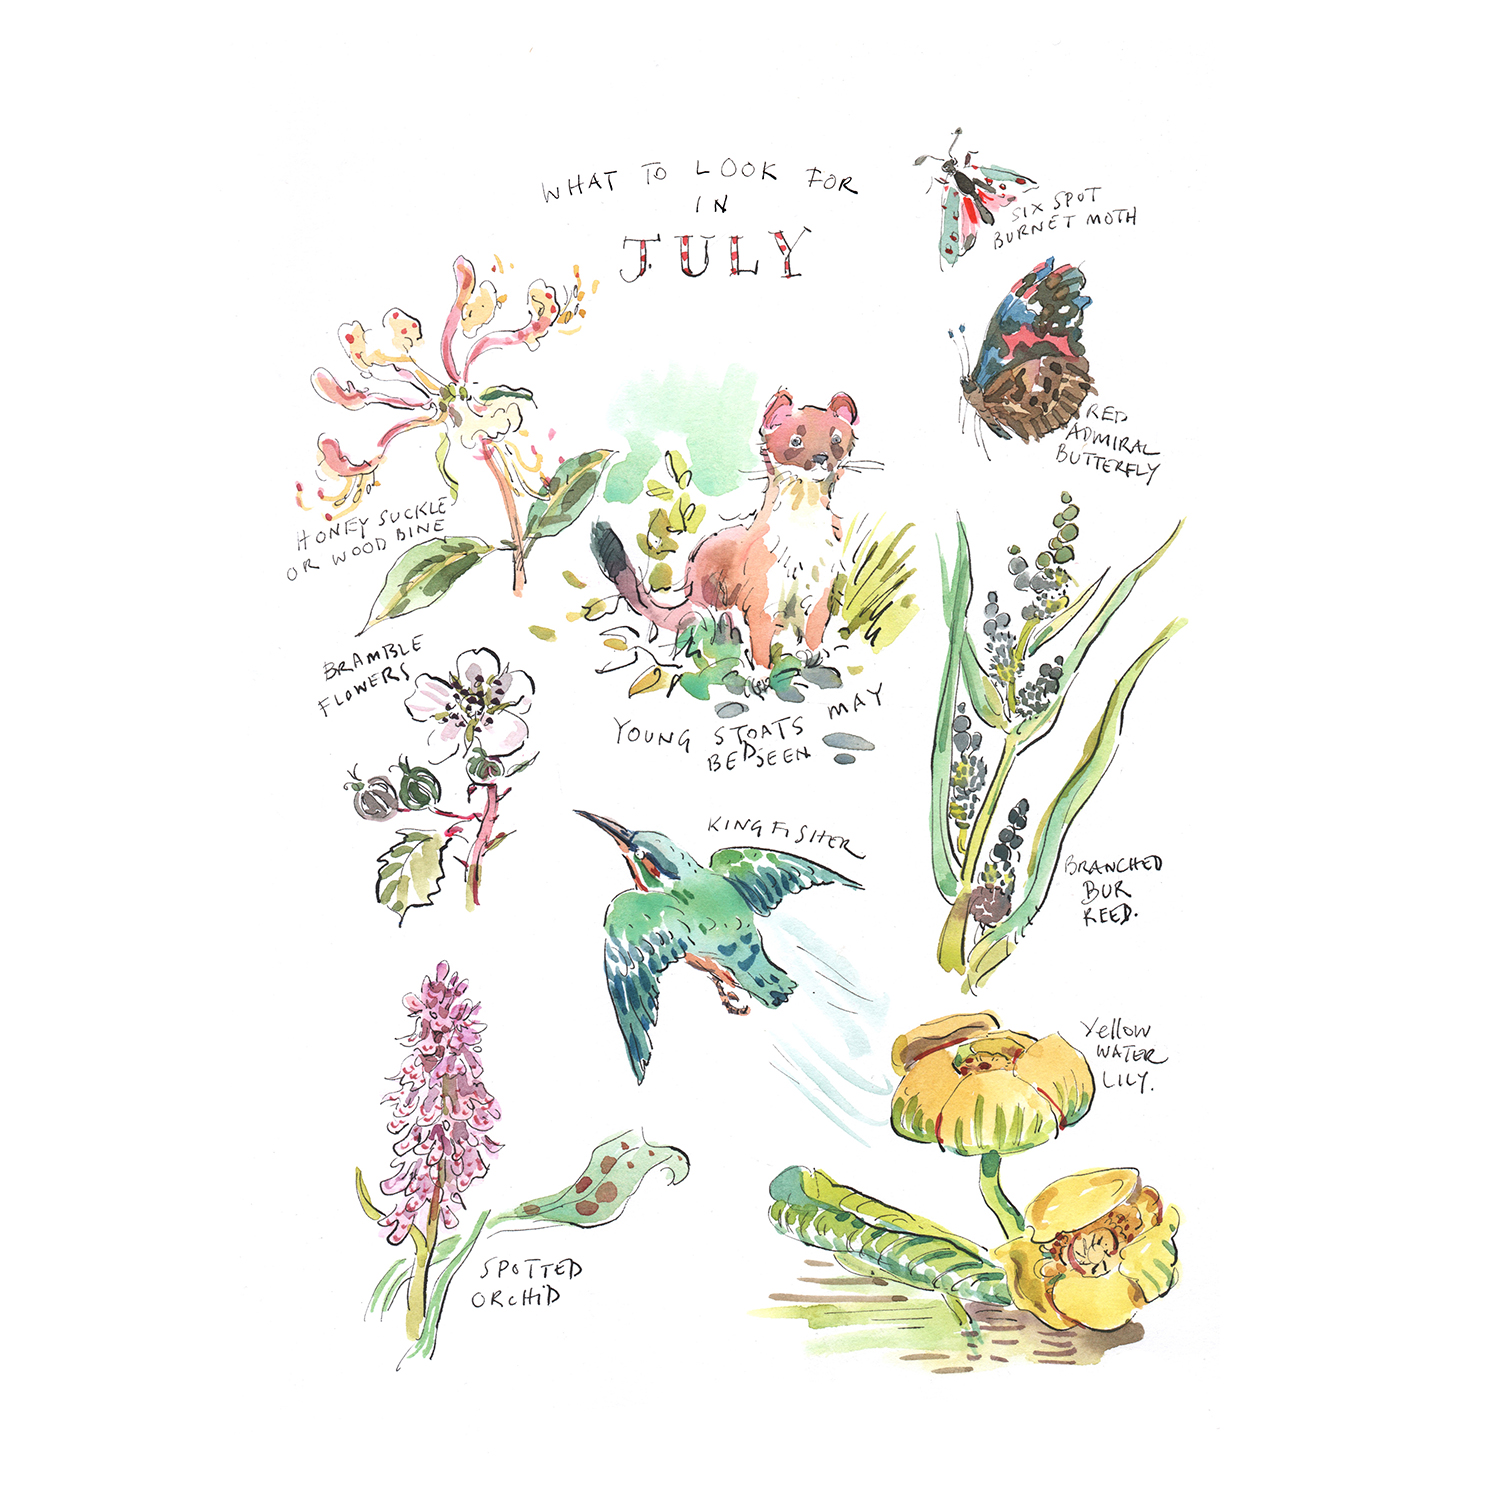 WHAT TO LOOK FOR
IN
JULY
SIX SPOT
BURNET MOTH
RED
ADMIRAL
BUTTERFLY
HONEY SUCKLE
OR WOOD BINE
BRAMBLE
FLOWERS
YOUNG STOATS MAY
BE SEEN
KINGFISHER
BRANCHED
BUR
REED.
Yellow
WATER
LILY.
SPOTTED
ORCHID